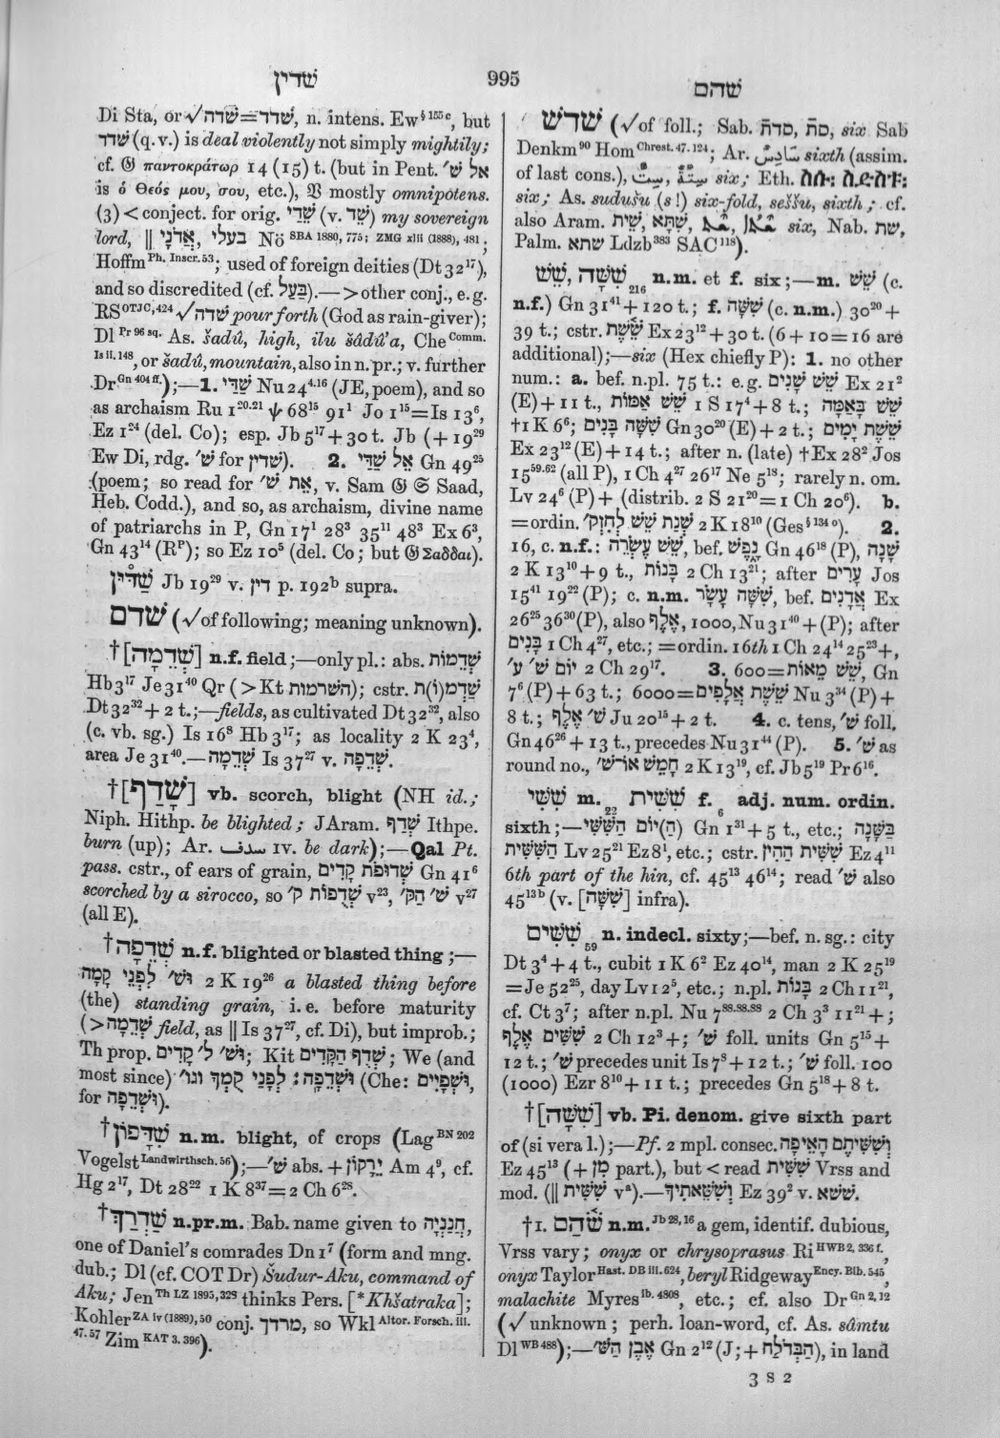 שׁדין
995
שׁהם
Di Sta, or √שׁדה=שׁדד, n. intens. Ew § 155 c, but
שׁדד (q.v.) is deal violently not simply mightily;
cf. 𝔊 παντοκράτωρ 14 (15) t. (but in Pent. אל שׁ׳
is ὁ Θεός μου, σου, etc.), 𝔙 mostly omnipotens.
(3) < conject. for orig. שֵׁדִי (v. שֵׁד) my sovereign
lord, || אֲדֹנָי, בעלי Nö SBA 1880, 775; ZMG xlii (1888), 481;
Hoffm Ph. Inscr. 53; used of foreign deities (Dt 32 17),
and so discredited (cf. בַּעַל).—> other conj., e.g.
RS OTJC, 424 √שׁדה pour forth (God as rain-giver);
Dl Pr 96 sq. As. šadû, high, ilu šâdû'a, Che Comm.
Is ii. 148, or šadû, mountain, also in n. pr.; v. further
Dr Gn 404 ff.);—1. שַׁדַּי Nu 24 4.16 (JE, poem), and so
as archaism Ru 1 20.21 ψ 68 15 91 1 Jo 1 15=Is 13 6,
Ez 1 24 (del. Co); esp. Jb 5 17 + 30 t. Jb (+ 19 29
Ew Di, rdg. שׁ׳ for שׁדין). 2. אֵל שַׁדַּי Gn 49 25
(poem; so read for אֵת שׁ׳, v. Sam 𝔊 𝔖 Saad,
Heb. Codd.), and so, as archaism, divine name
of patriarchs in P, Gn 17 1 28 3 35 11 48 3 Ex 6 3,
Gn 43 14 (R P); so Ez 10 5 (del. Co; but 𝔊 Σαδδαι).
שַׁדִּין Jb 19 29 v. דין p. 192 b supra.
שׁדם (√ of following; meaning unknown).
†[שְׁדֵמָה] n.f. field;—only pl.: abs. שְׁדֵמוֹת
Hb 3 17 Je 31 40 Qr (> Kt השׁרמות); cstr. שַׁדְמ(וֹ)ת
Dt 32 32 + 2 t.;—fields, as cultivated Dt 32 32, also
(c. vb. sg.) Is 16 8 Hb 3 17; as locality 2 K 23 4,
area Je 31 40.—שְׁדֵמָה Is 37 27 v. שְׁדֵפָה.
†[שָׁדַף] vb. scorch, blight (NH id.;
Niph. Hithp. be blighted; JAram. שְׁדַף Ithpe.
burn (up); Ar. سدف IV. be dark);—Qal Pt.
pass. cstr., of ears of grain, שְׁדוּפֹת קָדִים Gn 41 6
scorched by a sirocco, so שְׁדֻפוֹת ק׳ v 23, שׁ׳ הַקּ׳ v 27
(all E).
†שְׁדֵפָה n.f. blighted or blasted thing;—
וּשׁ׳ לִפְנֵי קָמָה 2 K 19 26 a blasted thing before
(the) standing grain, i.e. before maturity
(>שְׁדֵמָה field, as || Is 37 27, cf. Di), but improb.;
Th prop. וּשׁ׳ ל׳ קָדִים; Kit שְׁדֻף הַקָּדִים; We (and
most since) וּשְׁדֵפָה: לְפָנַי קֻמְךָ וגו׳ (Che: וּשְׁפָיִים,
for וּשְׁדֵפָה).
†שִׁדָּפוֹן n.m. blight, of crops (Lag BN 202
Vogelst Landwirthsch. 56);—שׁ׳ abs. + יֵרָקוֹן Am 4 9, cf.
Hg 2 17, Dt 28 22 1 K 8 37=2 Ch 6 28.
†שַׁדְרַךְ n.pr.m. Bab. name given to חֲנַנְיָה,
one of Daniel's comrades Dn 1 7 (form and mng.
dub.; Dl (cf. COT Dr) Šudur-Aku, command of
Aku; Jen Th LZ 1895, 329 thinks Pers. [*Khšatraka];
Kohler ZA iv (1889), 50 conj. מרדך, so Wkl Altor. Forsch. iii.
47. 57 Zim KAT 3. 396).
שׁדשׁ (√ of foll.; Sab. סדת, סת, six Sab
Denkm 90 Hom Chrest. 47. 124; Ar. سَادِسٌ sixth (assim.
of last cons.), سِتَّةٌ, سِتٌّ six; Eth. ስሱ፡ ስድስቱ፡
six; As. sudušu (s!) six-fold, seššu, sixth; cf.
also Aram. שִׁתָּא, שִׁית, six, Nab. שת,
Palm. שתא Ldzb 383 SAC 118).
שֵׁשׁ, שִׁשָּׁה 216 n.m. et f. six;—m. שֵׁשׁ (c.
n.f.) Gn 31 41 + 120 t.; f. שִׁשָּׁה (c. n.m.) 30 20 +
39 t.; cstr. שֵׁשֶׁת Ex 23 12 + 30 t. (6 + 10 = 16 are
additional);—six (Hex chiefly P): 1. no other
num.: a. bef. n.pl. 75 t.: e.g. שֵׁשׁ שָׁנִים Ex 21 2
(E) + 11 t., שֵׁשׁ אַמּוֹת 1 S 17 4 + 8 t.; שֵׁשׁ בָּאַמָּה
†1 K 6 6; שִׁשָּׁה בָנִים Gn 30 20 (E) + 2 t.; שֵׁשֶׁת יָמִים
Ex 23 12 (E) + 14 t.; after n. (late) †Ex 28 2 Jos
15 59.62 (all P), 1 Ch 4 27 26 17 Ne 5 18; rarely n. om.
Lv 24 6 (P) + (distrib. 2 S 21 20=1 Ch 20 6). b.
=ordin. שְׁנַת שֵׁשׁ לְחִזְק׳ 2 K 18 10 (Ges § 134 o). 2.
16, c. n.f.: שֵׁשׁ עֶשְׂרֵה, bef. נֶפֶשׁ Gn 46 18 (P), שָׁנָה
2 K 13 10 + 9 t., בָּנוֹת 2 Ch 13 21; after עָרִים Jos
15 41 19 22 (P); c. n.m. שִׁשָּׁה עָשָׂר, bef. אֲדָנִים Ex
26 25 36 30 (P), also אֶלֶף, 1000, Nu 31 40 + (P); after
בָּנִים 1 Ch 4 27, etc.; = ordin. 16th 1 Ch 24 14 25 23 +,
יוֹם שׁ׳ ע׳ 2 Ch 29 17. 3. 600=שֵׁשׁ מֵאוֹת, Gn
7 6 (P) + 63 t.; 6000=שֵׁשֶׁת אֲלָפִים Nu 3 34 (P) +
8 t.; שׁ׳ אֶלֶף Ju 20 15 + 2 t. 4. c. tens, שׁ׳ foll.
Gn 46 26 + 13 t., precedes Nu 31 44 (P). 5. שׁ׳ as
round no., חָמֵשׁ אוֹ־שׁ׳ 2 K 13 19, cf. Jb 5 19 Pr 6 16.
שִׁשִּׁי m. 22 שִׁשִּׁית f. 6 adj. num. ordin.
sixth;—(הַ)יוֹם הַשִּׁשִּׁי Gn 1 31 + 5 t., etc.; בַּשָּׁנָה
הַשִּׁשִּׁית Lv 25 21 Ez 8 1, etc.; cstr. שִׁשִּׁית הַהִין Ez 4 11
6th part of the hin, cf. 45 13 46 14; read שׁ׳ also
45 13 b (v. [שִׁשָּׁה] infra).
שִׁשִּׁים 59 n. indecl. sixty;—bef. n. sg.: city
Dt 3 4 + 4 t., cubit 1 K 6 2 Ez 40 14, man 2 K 25 19
=Je 52 25, day Lv 12 5, etc.; n.pl. בָּנוֹת 2 Ch 11 21,
cf. Ct 3 7; after n.pl. Nu 7 88.88.88 2 Ch 3 3 11 21 +;
שִׁשִּׁים אֶלֶף 2 Ch 12 3 +; שׁ׳ foll. units Gn 5 15 +
12 t.; שׁ׳ precedes unit Is 7 8 + 12 t.; שׁ׳ foll. 100
(1000) Ezr 8 10 + 11 t.; precedes Gn 5 18 + 8 t.
†[שִׁשָּׁה] vb. Pi. denom. give sixth part
of (si vera l.);—Pf. 2 mpl. consec. וְשִׁשִּׁיתֶם הָאֵיפָה
Ez 45 13 (+ מִן part.), but < read שִׁשִּׁית Vrss and
mod. (|| שִׁשִּׁית v a).—וְשִׁשֵּׁאתִיךָ Ez 39 2 v. שׁשׁא.
†I. שֹׁהַם n.m. Jb 28, 16 a gem, identif. dubious,
Vrss vary; onyx or chrysoprasus Ri HWB 2, 336 f.,
onyx Taylor Hast. DB iii. 624, beryl Ridgeway Ency. Bib. 545,
malachite Myres ib. 4808, etc.; cf. also Dr Gn 2, 12
(√ unknown; perh. loan-word, cf. As. sâmtu
Dl WB 488);—אֶבֶן הַשּׁ׳ Gn 2 12 (J; + הַבְּדֹלַח), in land
3 S 2